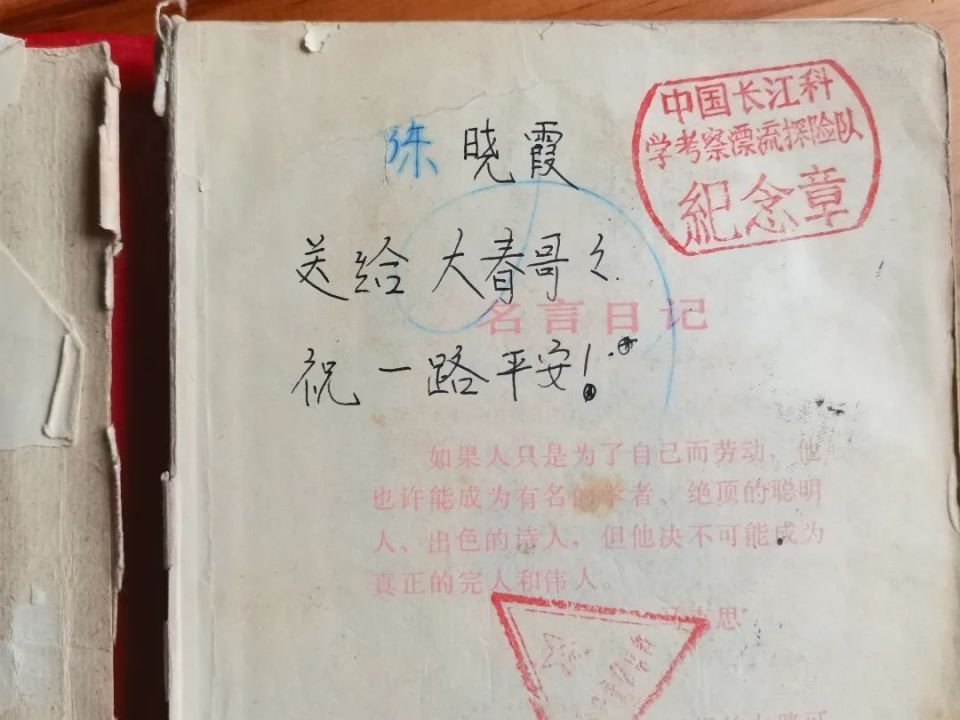 中国长江科
学考察漂流探险队
紀念章
陈晓霞
送给 大春哥々
名言日记
祝一路平安!
如果人只是为了自己而劳动，他
也许能成为有名的学者、绝顶的聪明
人、出色的诗人，但他决不可能成为
真正的完人和伟人。
马克思